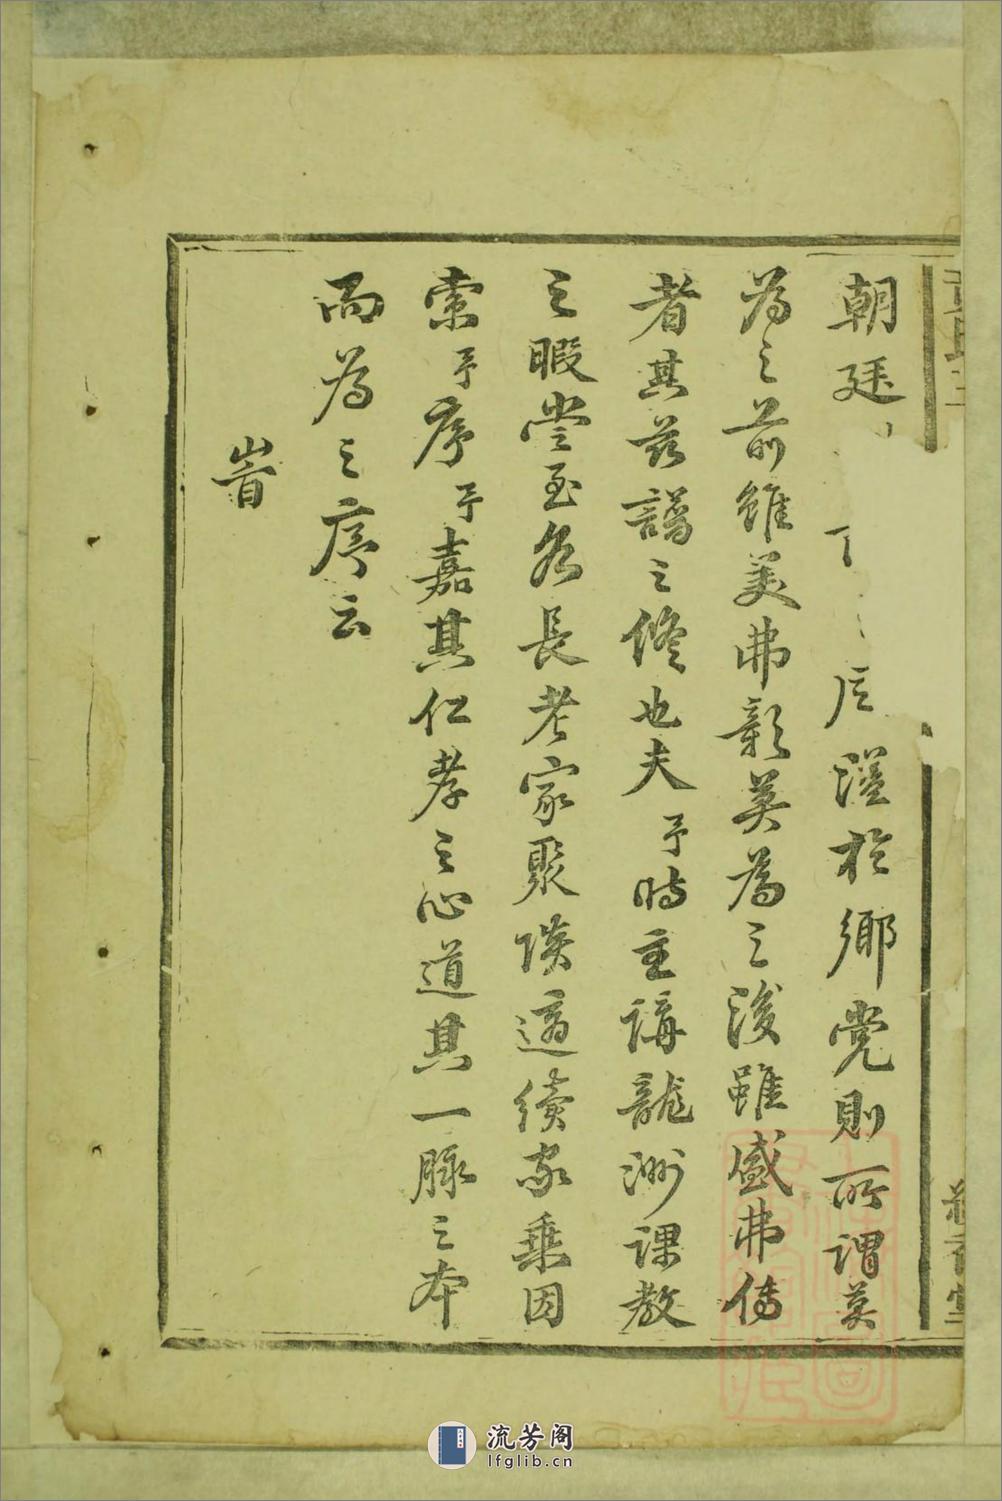 朝廷
溢於鄉党則所謂莫
為之前雖美弗彰莫為之後雖盛弗傳
者其茲譜之修也夫予時主講龍洲課教
之暇嘗至各長老家聚談適續家乘因
索予序予嘉其仁孝之心道其一脉之本
而為之序云
旹
流芳阁
lfglib.cn